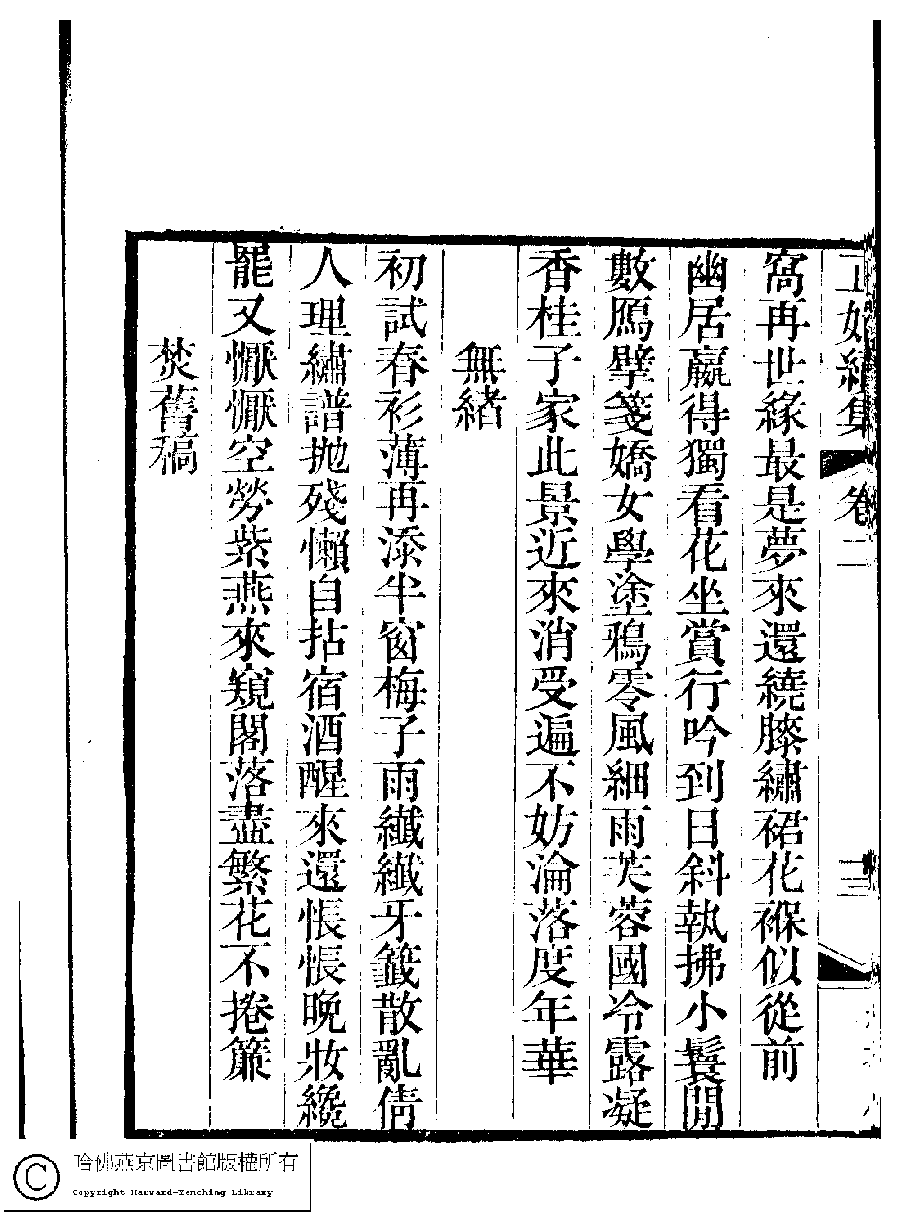 正始續集　卷二　三
窩再世緣最是夢來還繞膝繡裙花褓似從前
幽居贏得獨看花坐賞行吟到日斜執拂小鬟閒
數鴈擘箋嬌女學塗鴉零風細雨芙蓉國冷露凝
香桂子家此景近來消受遍不妨淪落度年華
無緒
初試春衫薄再添半窗梅子雨纖纖牙籤散亂倩
人理繡譜拋殘懶自拈宿酒醒來還悵悵晚妝纔
罷又懨懨空勞紫燕來窺閣落盡繁花不捲簾
焚舊稿
哈佛燕京圖書館版權所有
Copyright Harvard-Yenching Library